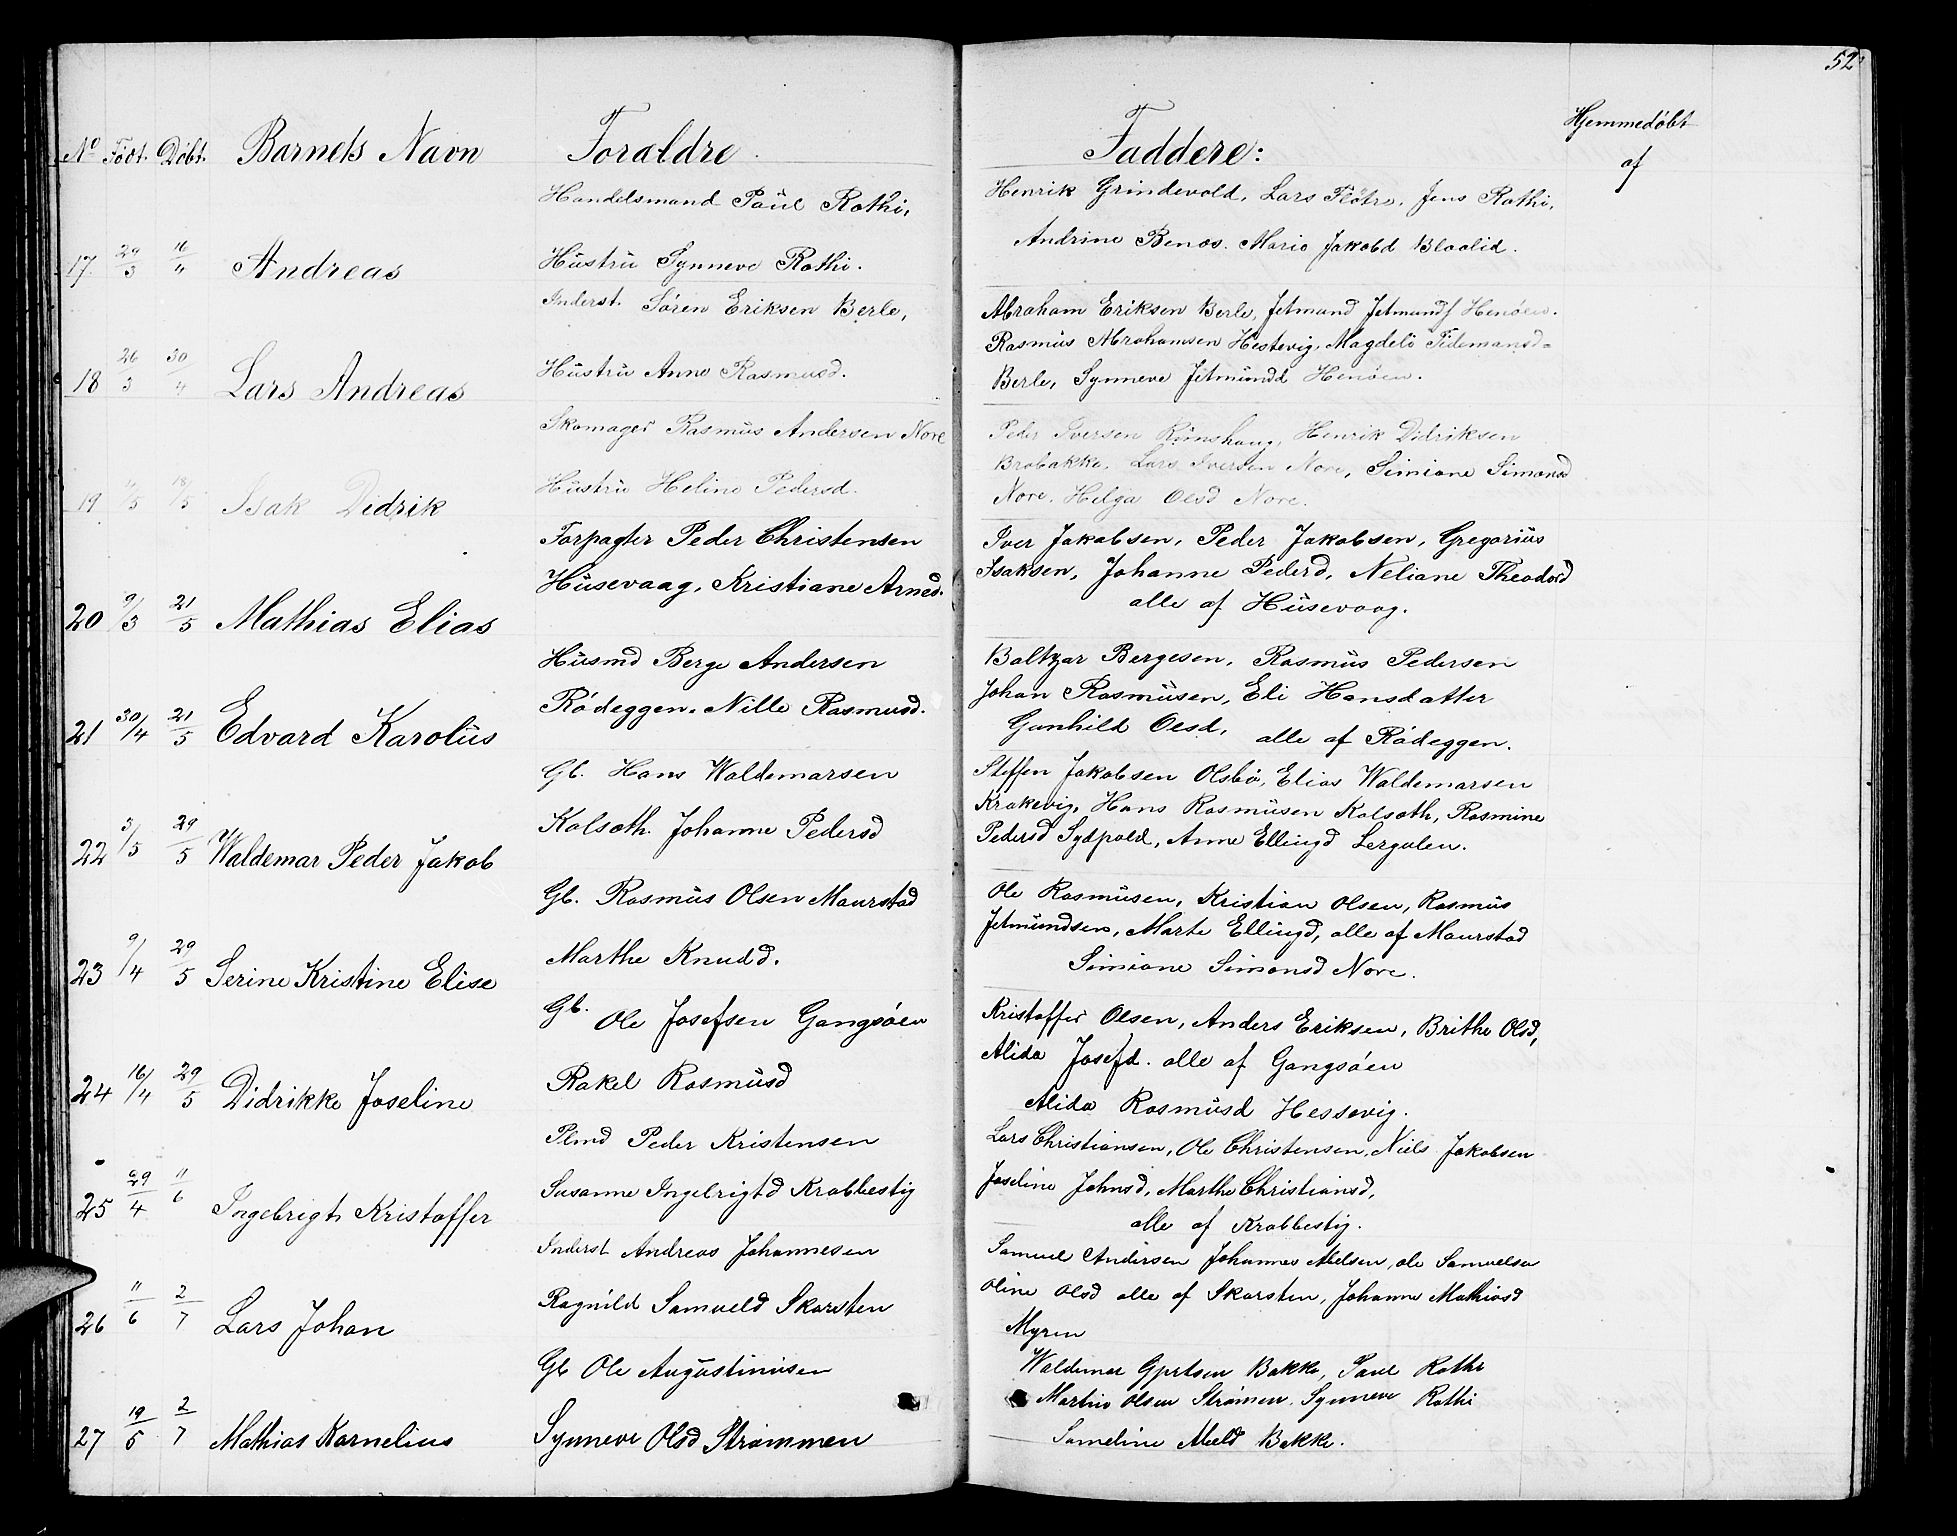 52
No Født. Døbt. Barnets Navn Forældre. Faddere: Hjemmedøbt af
Handelsmand Paul Rothi,
Henrik Grindevold, Lars Flötre, Jens Rothi,
17. 29/3 16/4 Andreas
Hustru Synneve Rothi.
Andrine Benos. Marie Jakobd Blaalid.
Inderst. Søren Eriksen Berle,
Abraham Eriksen Berle, Jetmund Jetmunds Henøen.
Rasmus Abrahamsen Hestevig, Magdele Tidemansd-
18 26/3 30/4 Lars Andreas
Hustru Anne Rasmusd.
Berle, Synneve Jetmundd Henøen.
Skomager Rasmus Andersen Nore
Peder Iversen Rimshaug, Henrik Didriksen
Brobakke, Lars Iversen Nore, Simione Simonsd
19 /5 18/5 Isak Didrik
Hustru Heline Pedersd.
Nore, Helga Olsd Nore.
Forpagter Peder Christensen
Iver Jakobsen, Peder Jakobsen, Gregorius
Husevaag, Kristiane Arned.
Isaksen, Johanne Pederd, Neliane Theodord
20 9/3 21/5 Mathias Elias
alle af Husevaag.
Husmd Berge Andersen
Baltzar Bergesen, Rasmus Pedersen
Rødeggen. Nille Rasmusd.
Johan Rasmusen, Eli Hansdatter
21 30/4 21/5 Edvard Karolus
Gunhild Olsd, alle af Rødeggen.
Gb. Hans Waldemarsen
Steffen Jakobsen Olsbø, Elias Waldemarsen
Kolsoth. Johanne Pedersd
Krakevig, Hans Rasmusen Kolsoth, Rasmine
22 3/5 29/5 Waldemar Peder Jakob
Pedersd Sydpold, Anne Ellingd Lergulen.
Gb. Rasmus Olsen Maurstad
Ole Rasmusen, Kristian Olsen, Rasmus
Jetmundsen, Marte Ellingd, alle af Maurstad
23 9/4 29/5 Serine Kristine Elise
Marthe Knudd.
Simione Simonsd Nore.
Gb. Ole Josefsen Gangsøen
Kristoffer Olsen, Anders Eriksen, Brithe Olsd,
Alida Josefd. alle af Gangsøen
24 16/4 29/5 Didrikke Joseline
Rakel Rasmusd
Alida Rasmusd Hessevig.
Plmd Peder Kristensen
Lars Christiansen, Ole Christensen, Niels Jakobsen
Susanne Ingebrigtd Krabbestig
Joseline Johnsd, Marthe Christiansd,
25 29/4 11/6 Ingebrigt Kristoffer
alle af Krabbestig.
Inderst Andreas Johannesen
Samuel Andersen Johannes Abelsen, ole Samuelsen
Ragnild Samueld Skarsten
Oline Olsd alle af Skarsten, Johanne Mathiasd
26 11/6 2/7 Lars Johan
Myren
Gb Ole Augustinusen
Waldemar Gjertsen Bakke, Paul Rothi
Martin Olsen Strømen, Synneve Rothi
27 19/5 2/7 Mathias Kornelius
Synneve Olsd Strømmen
Sameline Abeld Bakke.